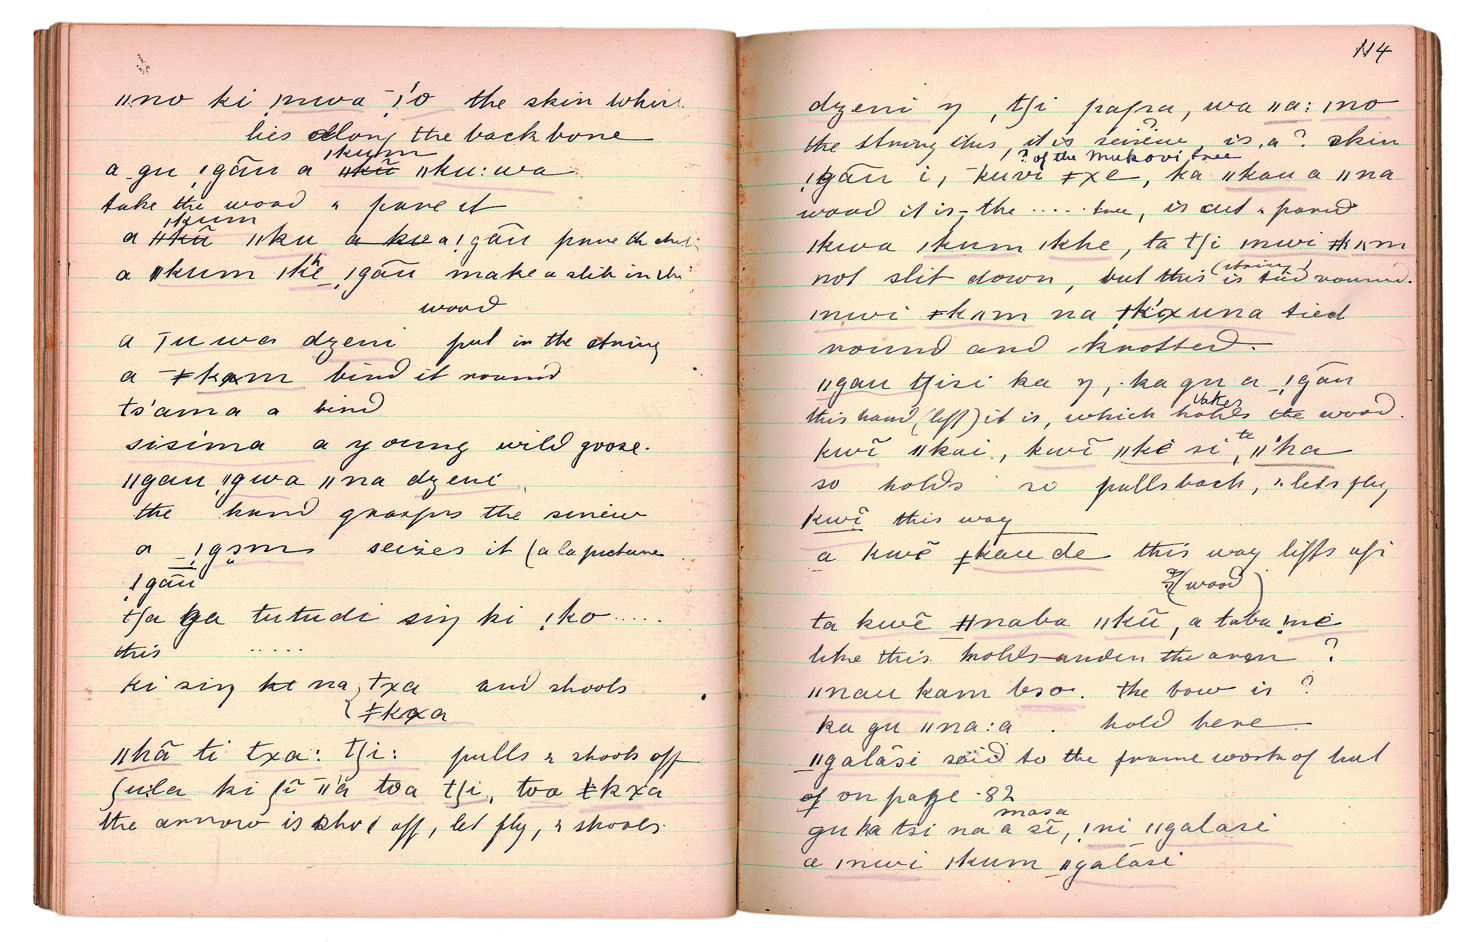 ǁno ki ˌmwa ǃ'o the skin which
lies along the backbone
ǀkum
a gu ǃgãu a ǁkũ ǁku:wa
take the wood & pare it
ǀkum
a ǁkũ ǁku a kw a ǃgãu pare the
a ǀkum ǀkhe ǃgãu make a slit in the
wood
a ƮƖu wa dzeni put in the string
a ǂkxam bind it round
ts'ama a bind
sisima a young wild goose.
ǁgau ǁgwa ǁna dzeni
the hand grasps the sinew
a ǃgəm seizes it (a la picture
ǃgãu
tʃa ga tutudi siŋ ki ǃko .....
this .....
ki siŋ ke na txa and shoots
ǂkxa
ǁkā ti txa: tʃi: pulls & shoots off
ʃula ki ʃĩ ǁ'a toa tʃi, toa ǂkxa
the arrow is shot off, let fly, & shoots
114
dzeni ŋ, tʃi papa, wa ǁa: ǀno
the string this, it is sinew, is, a? skin
? of the Mukovi tree
ǃgãu i, kuvi ǂxe, ka ǁkau a ǁna
wood it is, the ..... tree, is cut & pared
ǀkwa ǀkum ǀkhe, ta tʃi ǀnwi ǂkam
(string)
not slit down, but this is tied round.
ǀnwi ǂkam na ǂk'xuna tied
round and knotted.
ǁgau tʃisi ka ŋ, ka gu a ǃgãu
takes
this hand (left) it is, which holds the wood.
te
kwĩ ǁkai, kwĩ ǁkẽ si, ǁ'ka
so holds so pulls back, & lets fly
kwĩ this way
a kwẽ ǂkau de this way lifts up
(wood)
ta kwẽ ǂnaba ǁkũ, a taba ǃnẽ
like this holds under the arm ?
ǁnau kam tso. the bow is ?
ka gu ǁna:a . hold here
ǁgalãsi said to the frame work of hut
of on page 82
masa
gu ka tsi na a sĩ, ǃni ǁgalasi
a ǀnwi ǀkum ǁgalãsi